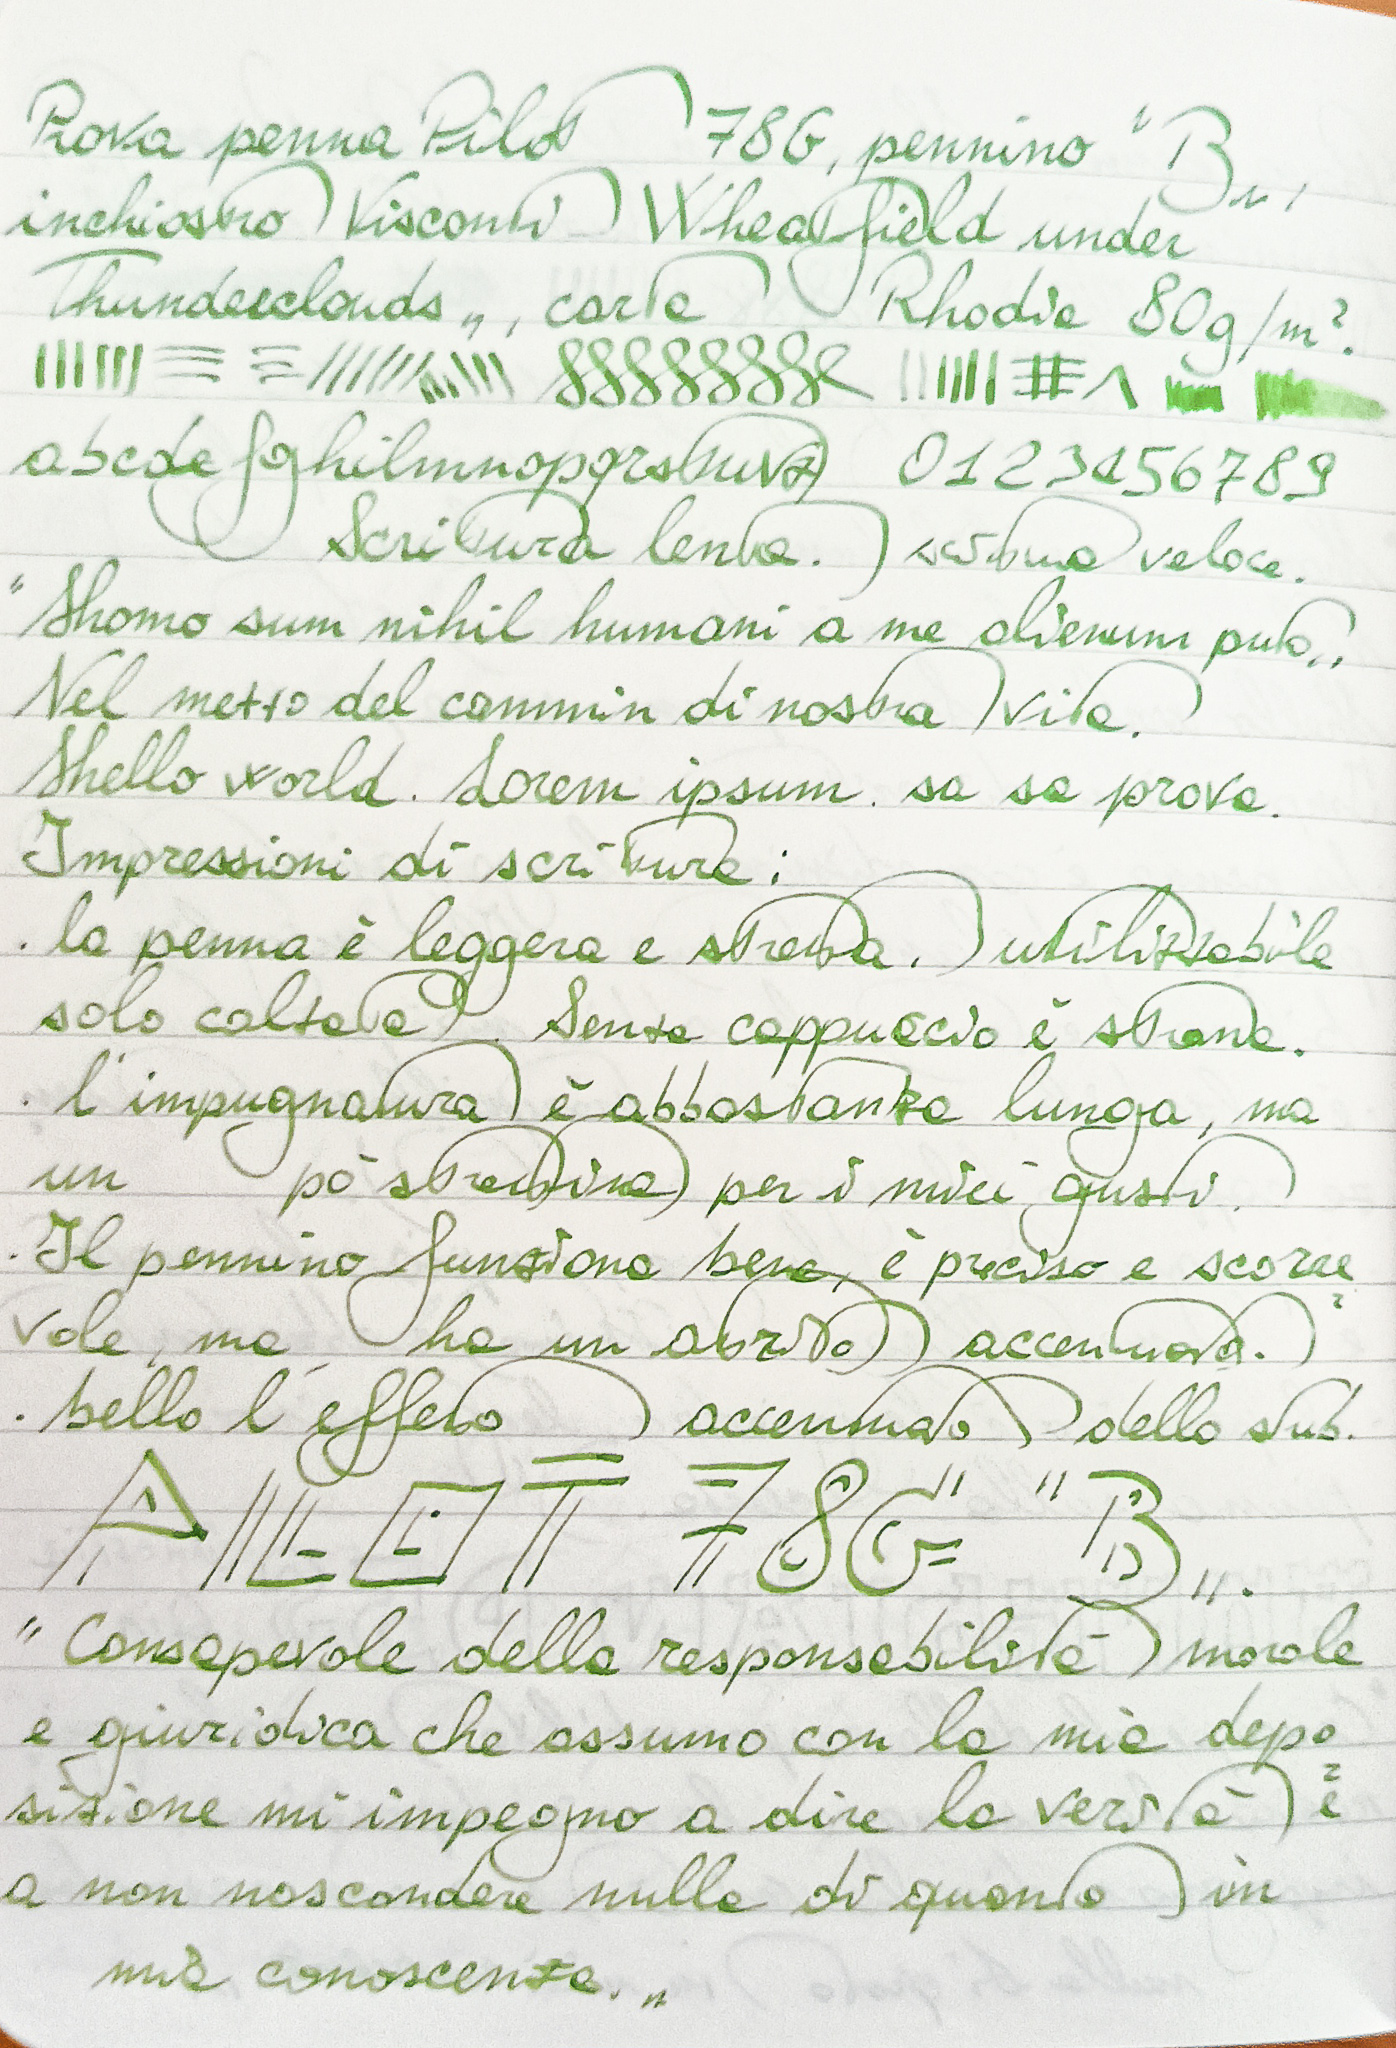 Prova penna Pilot 78G, pennino "B",
inchiostro Visconti Wheatfield under
Thunderclouds", carta Rhodia 80g/m².
abcdefghilmnopqrstuvz 0123456789
Scrittura lenta. scrittura veloce.
"Homo sum nihil humani a me alienum puto",
Nel mezzo del cammin di nostra vita.
Hello world. Lorem ipsum. sa sa prova.
Impressioni di scrittura:
. la penna è leggera e stretta. utilizzabile
solo calzata. Senza cappuccio è strana.
. l'impugnatura è abbastanza lunga, ma
un pò strettina per i miei gusti.
. Il pennino funziona bene, è preciso e scorre
vole, ma ha un attrito accentuato.
. bello l'effetto accennato dello stub.
PILOT 78G "B".
"Consapevole della responsabilità morale
e giuridica che assumo con la mia depo
sizione mi impegno a dire la verità e
a non nascondere nulla di quanto in
mia conoscenza."